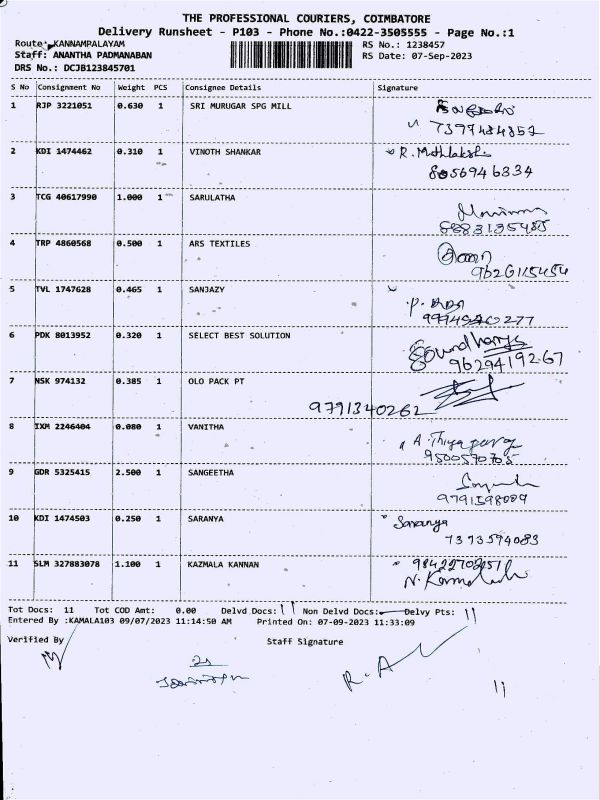 THE PROFESSIONAL COURIERS, COIMBATORE
Delivery Runsheet - P103 - Phone No.:0422-3505555 - Page No.:1
Route: KANNAMPALAYAM RS No.: 1238457
Staff: ANANTHA PADMANABAN RS Date: 07-Sep-2023
DRS No.: DCJB123845701
S No Consignment No Weight PCS Consignee Details Signature
1 RJP 3221051 0.630 1 SRI MURUGAR SPG MILL
2 KDI 1474462 0.310 1 VINOTH SHANKAR R. Muthlakshi
8056946334
3 TCG 40617990 1.000 1 SARULATHA
4 TRP 4860568 0.500 1 ARS TEXTILES
9626115454
5 TVL 1747628 0.465 1 SANJAZY
6 PDK 8013952 0.320 1 SELECT BEST SOLUTION Soundharya
9629419267
7 NSK 974132 0.385 1 OLO PACK PT
9791340262
8 IXM 2246404 0.080 1 VANITHA
9500570705
9 GDR 5325415 2.500 1 SANGEETHA
9791598009
10 KDI 1474503 0.250 1 SARANYA Saranya
7373594083
11 SLM 327883078 1.100 1 KAZMALA KANNAN
Tot Docs: 11 Tot COD Amt: 0.00 Delvd Docs: 11 Non Delvd Docs: Delvy Pts: 11
Entered By :KAMALA103 09/07/2023 11:14:50 AM Printed On: 07-09-2023 11:33:09
Verified By Staff Signature
R. A
11